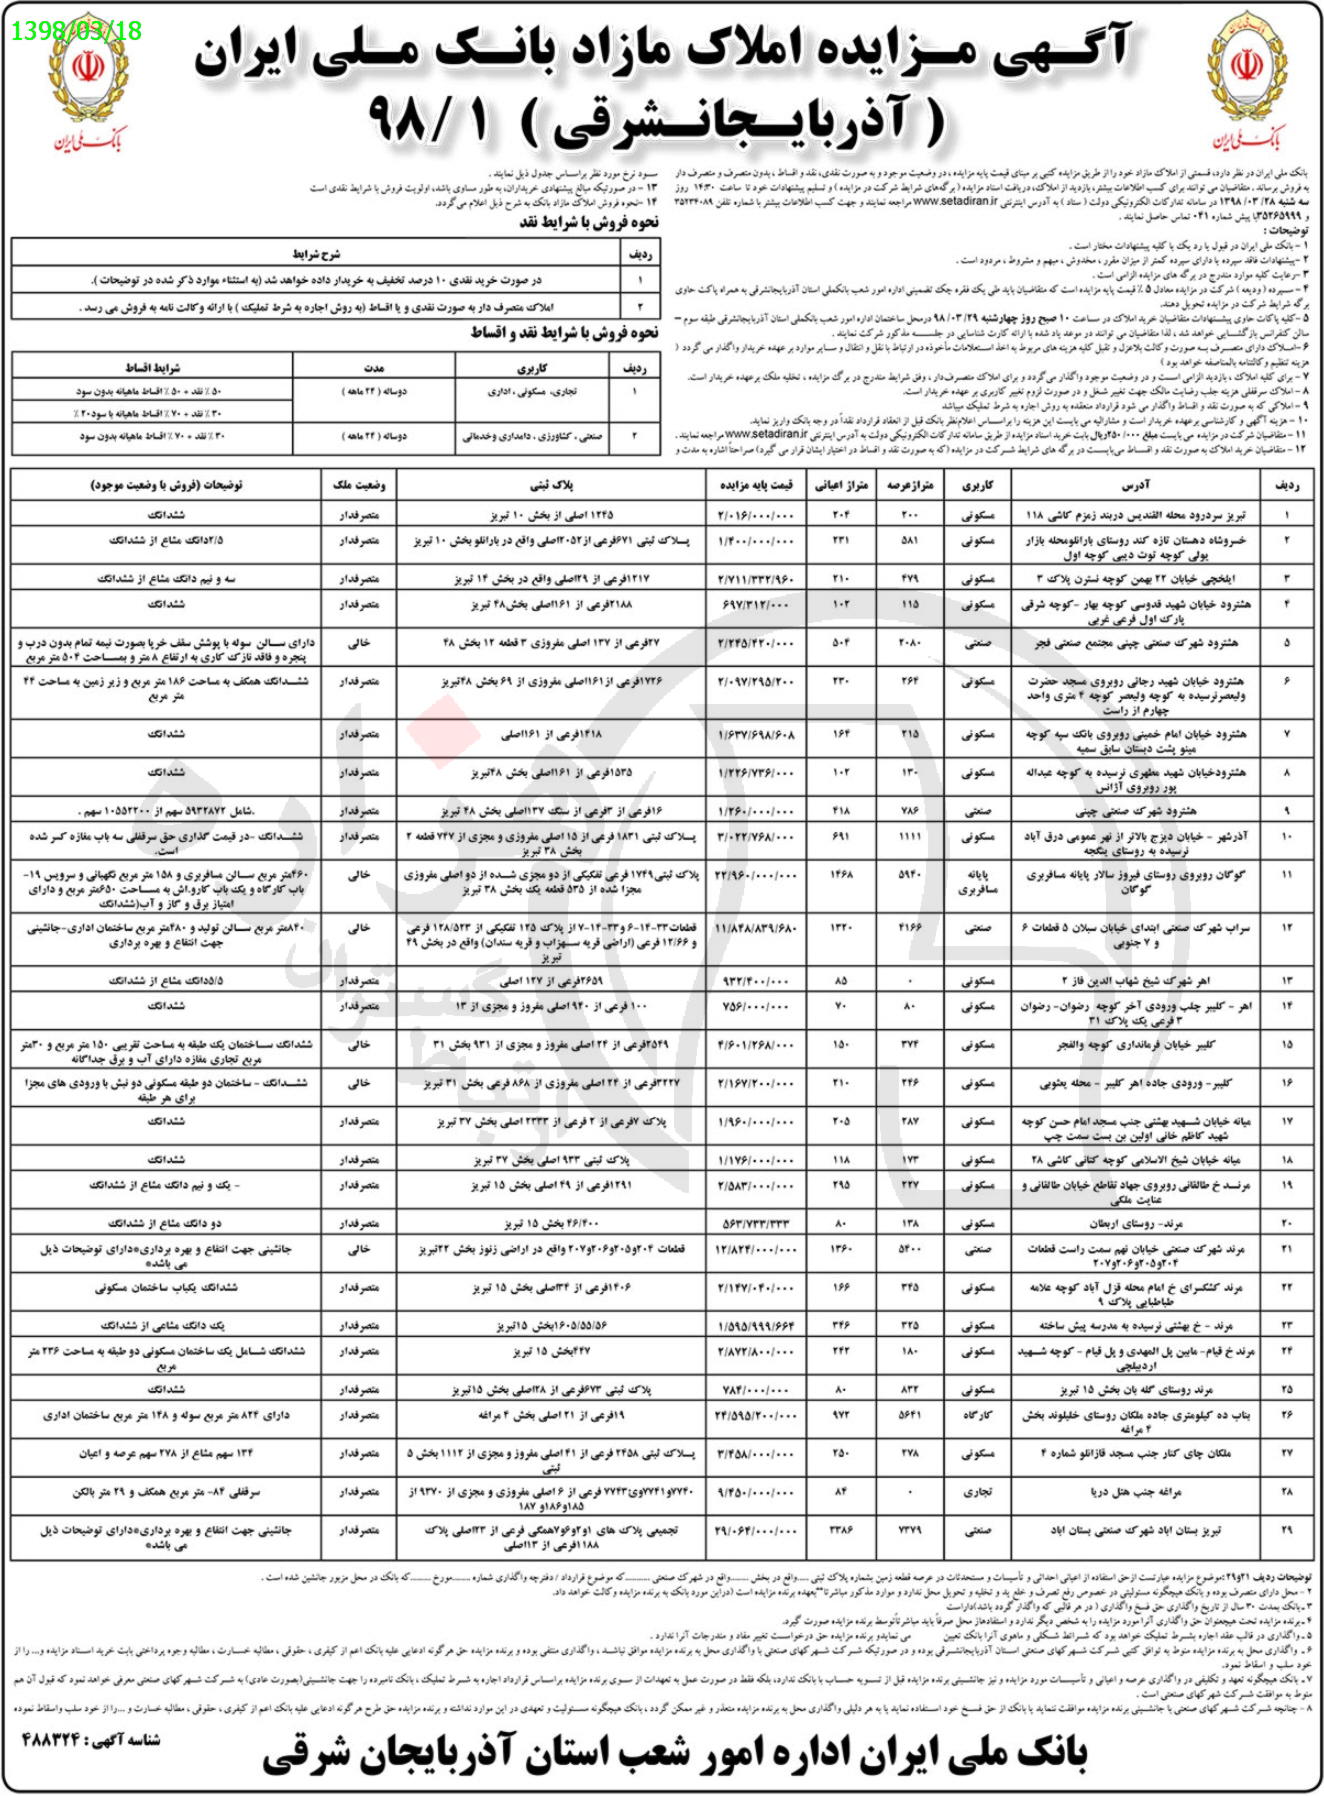 1398/03/18
آگهی مزایده املاک مازاد بانک ملی ایران
( آذربایجانشرقی ) ۹۸/۱
بانک ملی ایران
بانک ملی ایران
بانک ملی ایران در نظر دارد، قسمتی از املاک مازاد خود را از طریق مزایده کتبی بر مبنای قیمت پایه مزایده ، در وضعیت موجود و به صورت نقدی، نقد و اقساط ، بدون متصرف و متصرف دار
به فروش برساند . متقاضیان می توانند برای کسب اطلاعات بیشتر، بازدید از املاک، دریافت اسناد مزایده ( برگه‌های شرایط شرکت در مزایده ) و تسلیم پیشنهادات خود تا ساعت ۱۴:۳۰ روز
سه شنبه ۲۸/ ۰۳/ ۱۳۹۸ در سامانه تدارکات الکترونیکی دولت ( ستاد ) به آدرس اینترنتی www.setadiran.ir مراجعه نمایند و جهت کسب اطلاعات بیشتر با شماره تلفن ۳۵۲۳۴۰۸۹
و ۳۵۲۶۵۹۹۹با پیش شماره ۰۴۱ تماس حاصل نمایند .
توضیحات :
۱ – بانک ملی ایران در قبول یا رد یک یا کلیه پیشنهادات مختار است .
۲ –پیشنهادات فاقد سپرده یا دارای سپرده کمتر از میزان مقرر ، مخدوش ، مبهم و مشروط ، مردود است .
۳ –رعایت کلیه موارد مندرج در برگه های مزایده الزامی است .
۴ – سپرده ( ودیعه ) شرکت در مزایده معادل ۵ ٪ قیمت پایه مزایده است که متقاضیان باید طی یک فقره چک تضمینی اداره امور شعب بانکملی استان آذربایجانشرقی به همراه پاکت حاوی
برگه شرایط شرکت در مزایده تحویل دهند.
۵ –کلیه پاکات حاوی پیشنهادات متقاضیان خرید املاک در ساعت ۱۰ صبح روز چهارشنبه ۲۹/ ۰۳/ ۹۸ درمحل ساختمان اداره امور شعب بانکملی استان آذربایجانشرقی طبقه سوم –
سالن کنفرانس بازگشایی خواهد شد ، لذا متقاضیان می توانند در موعد یاد شده با ارائه کارت شناسایی در جلسه مذکور شرکت نمایند .
۶ –املاک دارای متصرف به صورت وکالت بلاعزل و تقبل کلیه هزینه های مربوط به اخذ استعلامات مأخوذه در ارتباط با نقل و انتقال و سایر موارد بر عهده خریدار واگذار می گردد (
هزینه تنظیم وکالتنامه بالمناصفه خواهد بود )
۷ – برای کلیه املاک ، بازدید الزامی است و در وضعیت موجود واگذار می‌گردد و برای املاک متصرف‌دار ، وفق شرایط مندرج در برگ مزایده ، تخلیه ملک برعهده خریدار است.
۸ – املاک سرقفلی هزینه جلب رضایت مالک جهت تغییر شغل و در صورت لزوم تغییر کاربری بر عهده خریدار است.
۹ – املاکی که به صورت نقد و اقساط واگذار می شود قرارداد منعقده به روش اجاره به شرط تملیک میباشد
۱۰ – هزینه آگهی و کارشناسی برعهده خریدار است و مشارالیه می بایست این هزینه را براساس اعلام‌نظر بانک قبل از انعقاد قرارداد نقداً در وجه بانک واریز نماید.
۱۱ – متقاضیان شرکت در مزایده می بایست مبلغ ۲۵۰/۰۰۰ریال بابت خرید اسناد مزایده از طریق سامانه تدارکات الکترونیکی دولت به آدرس اینترنتی www.setadiran.ir مراجعه نمایند .
۱۲ – متقاضیان خرید املاک به صورت نقد و اقساط می‌بایست در برگه های شرایط شرکت در مزایده (که به صورت نقد و اقساط در اختیار ایشان قرار می گیرد) صراحتاً اشاره به مدت و
سود نرخ مورد نظر براساس جدول ذیل نمایند .
۱۳ – در صورتیکه مبالغ پیشنهادی خریداران، به طور مساوی باشد، اولویت فروش با شرایط نقدی است
۱۴ –نحوه فروش املاک مازاد بانک به شرح ذیل اعلام می‌گردد.
نحوه فروش با شرایط نقد
ردیف شرح شرایط
۱ در صورت خرید نقدی ۱۰ درصد تخفیف به خریدار داده خواهد شد (به استثناء موارد ذکر شده در توضیحات ).
۲ املاک متصرف دار به صورت نقدی و یا اقساط (به روش اجاره به شرط تملیک ) با ارائه وکالت نامه به فروش می رسد .
نحوه فروش با شرایط نقد و اقساط
ردیف کاربری مدت شرایط اقساط
۱ تجاری، مسکونی ، اداری دوساله ( ۲۴ ماهه ) ۵۰ ٪ نقد + ۵۰ ٪ اقساط ماهیانه بدون سود
۳۰ ٪ نقد + ۷۰ ٪ اقساط ماهیانه با سود۲۰ ٪
۲ صنعتی ، کشاورزی ، دامداری وخدماتی دوساله ( ۲۴ ماهه ) ۳۰ ٪ نقد + ۷۰ ٪ اقساط ماهیانه بدون سود
ردیف آدرس کاربری متراژعرصه متراژ اعیانی قیمت پایه مزایده پلاک ثبتی وضعیت ملک توضیحات (فروش با وضعیت موجود)
۱ تبریز سردرود محله القندیس دربند زمزم کاشی ۱۱۸ مسکونی ۲۰۰ ۲۰۴ ۲/۰۱۶/۰۰۰/۰۰۰ ۱۲۴۵ اصلی از بخش ۱۰ تبریز متصرفدار ششدانگ
۲ خسروشاه دهستان تازه کند روستای بارانلومحله بازار مسکونی ۵۸۱ ۲۳۱ ۱/۴۰۰/۰۰۰/۰۰۰ پلاک ثبتی ۶۷۱فرعی از۲۰۵۲اصلی واقع در بارانلو بخش ۱۰ تبریز متصرفدار ۲/۵دانگ مشاع از ششدانگ
پولی کوچه توت دیبی کوچه اول
۳ ایلخچی خیابان ۲۲ بهمن کوچه نسترن پلاک ۳ مسکونی ۴۷۹ ۲۱۰ ۲/۷۱۱/۳۳۲/۹۶۰ ۱۲۱۷فرعی از ۲۹اصلی واقع در بخش ۱۴ تبریز متصرفدار سه و نیم دانگ مشاع از ششدانگ
۴ هشترود خیابان شهید قدوسی کوچه بهار –کوچه شرقی مسکونی ۱۱۵ ۱۰۲ ۶۹۷/۳۱۲/۰۰۰ ۲۱۸۸فرعی از ۱۶۱اصلی بخش۴۸ تبریز متصرفدار ششدانگ
پارک اول فرعی غربی
۵ هشترود شهرک صنعتی چینی مجتمع صنعتی فجر صنعتی ۲۰۸۰ ۵۰۴ ۲/۲۴۵/۴۲۰/۰۰۰ ۲۷فرعی از ۱۳۷ اصلی مفروزی ۳ قطعه ۱۲ بخش ۴۸ خالی دارای سالن سوله با پوشش سقف خرپا بصورت نیمه تمام بدون درب و
پنجره و فاقد نازک کاری به ارتفاع ۸ متر و بمساحت ۵۰۴ متر مربع
۶ هشترود خیابان شهید رجائی روبروی مسجد حضرت مسکونی ۲۶۴ ۲۳۰ ۲/۰۹۷/۲۹۵/۲۰۰ ۱۷۲۶فرعی از۱۶۱اصلی مفروزی از ۶۹ بخش ۴۸تبریز متصرفدار ششدانگ همکف به مساحت ۱۸۶ متر مربع و زیر زمین به مساحت ۴۴
ولیعصرنرسیده به کوچه ولیعصر کوچه ۴ متری واحد متر مربع
چهارم از راست
۷ هشترود خیابان امام خمینی روبروی بانک سپه کوچه مسکونی ۲۱۵ ۱۶۴ ۱/۶۳۷/۶۹۸/۶۰۸ ۱۴۱۸فرعی از ۱۶۱اصلی متصرفدار ششدانگ
مینو پشت دبستان سابق سمیه
۸ هشترودخیابان شهید مطهری نرسیده به کوچه عبداله مسکونی ۱۳۰ ۱۰۲ ۱/۲۲۶/۷۳۶/۰۰۰ ۱۵۳۵فرعی از ۱۶۱اصلی بخش ۴۸تبریز متصرفدار ششدانگ
پور روبروی آژانس
۹ هشترود شهرک صنعتی چینی صنعتی ۷۸۶ ۴۱۸ ۱/۲۶۰/۰۰۰/۰۰۰ ۱۶فرعی از ۳فرعی از سنگ ۱۳۷اصلی بخش ۴۸ تبریز متصرفدار .شامل ۵۹۳۲۸۷۲ سهم از ۱۰۵۵۲۲۰۰ سهم .
۱۰ آذرشهر – خیابان دیزج بالاتر از نهر عمومی درق آباد مسکونی ۱۱۱۱ ۶۹۱ ۳/۰۲۲/۷۶۸/۰۰۰ پلاک ثبتی ۱۸۳۱ فرعی از ۱۵ اصلی مفروزی و مجزی از ۷۴۷ قطعه ۲ متصرفدار ششدانگ –در قیمت گذاری حق سرقفلی سه باب مغازه کسر شده
نرسیده به روستای ینگجه بخش ۳۸ تبریز است.
۱۱ گوگان روبروی روستای فیروز سالار پایانه مسافربری پایانه ۵۹۴۰ ۱۴۶۸ ۲۲/۹۶۰/۰۰۰/۰۰۰ پلاک ثبتی۱۷۴۹ فرعی تفکیکی از دو مجزی شده از دو اصلی مفروزی خالی ۴۶۰متر مربع سالن مسافربری و ۱۵۸ متر مربع نگهبانی و سرویس ۱۹-
گوگان مسافربری مجزا شده از ۵۳۵ قطعه یک بخش ۳۸ تبریز باب کارگاه و یک باب کارواش به مساحت ۶۵۰متر مربع و دارای
امتیاز برق و گاز و آب(ششدانگ
۱۲ سراب شهرک صنعتی ابتدای خیابان سبلان ۵ قطعات ۶ صنعتی ۴۱۶۶ ۱۳۲۰ ۱۱/۸۴۸/۸۳۹/۶۸۰ قطعات ۳۳–۱۴–۶ و۳۳–۱۴–۷ از پلاک ۱۲۵ تفکیکی از ۱۲۸/۵۲۳ فرعی خالی ۸۴۰متر مربع سالن تولید و ۴۸۰متر مربع ساختمان اداری-جانشینی
و ۷ جنوبی و ۱۲/۶۶ فرعی (اراضی قریه سهزاب و قریه سندان) واقع در بخش ۴۹ جهت انتفاع و بهره برداری
تبریز
۱۳ اهر شهرک شیخ شهاب الدین فاز ۲ مسکونی ۰ ۸۵ ۹۳۲/۴۰۰/۰۰۰ ۲۶۵۹فرعی از ۱۲۷ اصلی متصرفدار ۵/۵دانگ مشاع از ششدانگ
۱۴ اهر – کلیبر چلب ورودی آخر کوچه رضوان– رضوان مسکونی ۸۰ ۷۰ ۷۵۶/۰۰۰/۰۰۰ ۱۰۰ فرعی از ۹۴۰ اصلی مفروز و مجزی از ۱۳ متصرفدار ششدانگ
۳ فرعی یک پلاک ۳۱
۱۵ کلیبر خیابان فرمانداری کوچه والفجر مسکونی ۳۷۴ ۱۵۰ ۴/۶۰۱/۲۶۸/۰۰۰ ۲۵۴۹فرعی از ۲۴ اصلی مفروز و مجزی از ۹۳۱ بخش ۳۱ خالی ششدانگ ساختمان یک طبقه به مساحت تقریبی ۱۵۰ متر مربع و ۳۰متر
مربع تجاری مغازه دارای آب و برق جداگانه
۱۶ کلیبر– ورودی جاده اهر کلیبر – محله یعثوبی مسکونی ۲۴۶ ۲۱۰ ۲/۱۶۷/۲۰۰/۰۰۰ ۳۲۲۷فرعی از ۲۴ اصلی مفروزی از ۸۶۸ فرعی بخش ۳۱ تبریز خالی ششدانگ – ساختمان دو طبقه مسکونی دو نبش با ورودی های مجزا
برای هر طبقه
۱۷ میانه خیابان شهید بهشتی جنب مسجد امام حسن کوچه مسکونی ۲۸۷ ۲۰۵ ۱/۹۶۰/۰۰۰/۰۰۰ پلاک ۷فرعی از ۲ فرعی از ۲۳۳۳ اصلی بخش ۳۷ تبریز متصرفدار ششدانگ
شهید کاظم خانی اولین بن بست سمت چپ
۱۸ میانه خیابان شیخ الاسلامی کوچه کتانی کاشی ۲۸ مسکونی ۱۷۳ ۱۱۸ ۱/۱۷۶/۰۰۰/۰۰۰ پلاک ثبتی ۹۳۳ اصلی بخش ۳۷ تبریز متصرفدار ششدانگ
۱۹ مرند خ طالقانی روبروی جهاد تقاطع خیابان طالقانی و مسکونی ۲۲۷ ۲۹۵ ۲/۵۸۳/۰۰۰/۰۰۰ ۱۲۹۱فرعی از ۴۹ اصلی بخش ۱۵ تبریز متصرفدار – یک و نیم دانگ مشاع از ششدانگ
عنایت ملکی
۲۰ مرند– روستای اربطان مسکونی ۱۳۸ ۸۰ ۵۶۳/۷۳۳/۳۳۳ ۴۶/۴۰۰ بخش ۱۵ تبریز متصرفدار دو دانگ مشاع از ششدانگ
۲۱ مرند شهرک صنعتی خیابان نهم سمت راست قطعات صنعتی ۵۴۰۰ ۱۳۶۰ ۱۲/۸۲۴/۰۰۰/۰۰۰ قطعات ۲۰۴و۲۰۵و۲۰۶و۲۰۷ واقع در اراضی زنوز بخش ۲۲تبریز خالی جانشینی جهت انتفاع و بهره برداری*دارای توضیحات ذیل
۲۰۴و۲۰۵و۲۰۶و۲۰۷ می باشد*
۲۲ مرند کشکسرای خ امام محله قزل آباد کوچه علامه مسکونی ۳۴۵ ۱۶۶ ۲/۱۴۷/۰۴۰/۰۰۰ ۱۴۰۶فرعی از ۳۴اصلی بخش ۱۵ تبریز متصرفدار ششدانگ یکباب ساختمان مسکونی
طباطبایی پلاک ۹
۲۳ مرند – خ بهشتی نرسیده به مدرسه پیش ساخته مسکونی ۳۲۵ ۳۴۶ ۱/۵۹۵/۹۹۹/۶۶۴ ۱۶۰۵/۵۵/۵۶بخش ۱۵تبریز متصرفدار یک دانگ مشاعی از ششدانگ
۲۴ مرند خ قیام– مابین پل المهدی و پل قیام – کوچه شهید مسکونی ۱۸۰ ۲۴۲ ۲/۸۷۲/۸۰۰/۰۰۰ ۴۴۷بخش ۱۵ تبریز متصرفدار ششدانگ شامل یک ساختمان مسکونی دو طبقه به مساحت ۲۳۶ متر
اردبیلچی مربع
۲۵ مرند روستای گله بان بخش ۱۵ تبریز مسکونی ۸۳۲ ۸۰ ۷۸۴/۰۰۰/۰۰۰ پلاک ثبتی ۶۷۳فرعی از ۲۸اصلی بخش ۱۵تبریز متصرفدار ششدانگ
۲۶ بناب ده کیلومتری جاده ملکان روستای خلیلوند بخش کارگاه ۵۶۴۱ ۹۷۲ ۲۴/۵۹۵/۲۰۰/۰۰۰ ۱۹فرعی از ۲۱ اصلی بخش ۴ مراغه متصرفدار دارای ۸۲۴ متر مربع سوله و ۱۴۸ متر مربع ساختمان اداری
۴ مراغه
۲۷ ملکان چای کنار جنب مسجد قازانلو شماره ۴ مسکونی ۲۷۸ ۲۵۰ ۳/۴۵۸/۰۰۰/۰۰۰ پلاک ثبتی ۲۴۵۸ فرعی از ۴۱ اصلی مفروز و مجزی از ۱۱۱۲ بخش ۵ متصرفدار ۱۳۴ سهم مشاع از ۲۷۸ سهم عرصه و اعیان
ثبتی
۲۸ مراغه جنب هتل دریا تجاری ۰ ۸۴ ۹/۴۵۰/۰۰۰/۰۰۰ ۷۷۴۰و۷۷۴۱و۷۷۴۳ فرعی از ۶ اصلی مفروزی و مجزی از ۹۳۷۰ از متصرفدار سرقفلی ۸۴– متر مربع همکف و ۲۹ متر بالکن
۱۸۵و۱۸۶و ۱۸۷
۲۹ تبریز بستان اباد شهرک صنعتی بستان اباد صنعتی ۷۳۷۹ ۳۳۸۶ ۲۹/۰۶۴/۰۰۰/۰۰۰ تجمیعی پلاک های ۱و۲و۶و۷همگی فرعی از ۲۳اصلی پلاک متصرفدار جانشینی جهت انتفاع و بهره برداری*دارای توضیحات ذیل
۱۱۸۸فرعی از ۱۳اصلی می باشد*
توضیحات ردیف ۲۱و۲۹:موضوع مزایده عبارتست ازحق استفاده از اعیانی احداثی و تأسیسات و مستحدثات در عرصه قطعه زمین بشماره پلاک ثبتی .....واقع در بخش ........واقع در شهرک صنعتی .........که موضوع قرارداد / دفترچه واگذاری شماره .......مورخ .........که بانک در محل مزبور جانشین شده است .
۲ – محل دارای متصرف بوده و بانک هیچگونه مسئولیتی در خصوص رفع تصرف و خلع ید و تخلیه و تحویل محل ندارد و موارد مذکور مباشرتا"بعهده برنده مزایده است (دراین مورد بانک به برنده مزایده وکالت خواهد داد.
۳ –بانک بمدت ۳۰ سال از تاریخ واگذاری حق فسخ واگذاری ( در هر قالبی که واگذار گردد باشد)داراست
۴ – برنده مزایده تحت هیچعنوان حق واگذاری آنرا مورد مزایده را به شخص دیگر ندارد و استفادهاز محل صرفاً باید مباشرتاًتوسط برنده مزایده صورت گیرد.
۵ – واگذاری در قالب عقد اجاره بشرط تملیک خواهد بود که شرائط شکلی و ماهوی آنرا بانک تعیین می نمایدو برنده مزایده حق درخواست تغییر مفاد و مندرجات آنرا ندارد .
۶ – واگذاری محل به برنده مزایده منوط به توافق کتبی شرکت شهرکهای صنعتی استان آذربایجانشرقی بوده و در صورتیکه شرکت شهرکهای صنعتی با واگذاری محل به برنده مزایده موافق نباشد ، واگذاری منتفی بوده و برنده مزایده حق هرگونه ادعایی علیه بانک اعم از کیفری ، حقوقی ، مطالبه خسارت ، مطالبه وجوه پرداختی بابت خرید اسناد مزایده و... را از
خود سلب و اسقاط نمود.
۷ – بانک هیچگونه تعهد و تکلیفی در واگذاری عرصه و اعیانی و تأسیسات مورد مزایده و نیز جانشینی برنده مزایده قبل از تسویه حساب با بانک ندارد، بلکه فقط در صورت عمل به تعهدات از سوی برنده مزایده براساس قرارداد اجاره به شرط تملیک ، بانک نامبرده را جهت جانشینی(بصورت عادی) به شرکت شهرکهای صنعتی معرفی خواهد نمود که قبول آن هم
منوط به موافقت شرکت شهرکهای صنعتی است .
۸ – چنانچه شرکت شهرکهای صنعتی با جانشینی برنده مزایده موافقت ننماید یا بانک از حق فسخ خود استفاده نماید یا به هر دلیلی واگذاری محل به برنده مزایده متعذر و غیر ممکن گردد ، بانک هیچگونه مسئولیت و تعهدی در این موارد نداشته و برنده مزایده حق طرح هرگونه ادعایی علیه بانک اعم از کیفری ، حقوقی ، مطالبه خسارت و ...را از خود سلب واسقاط نموده
بانک ملی ایران اداره امور شعب استان آذربایجان شرقی
شناسه آگهی : ۴۸۸۳۲۴